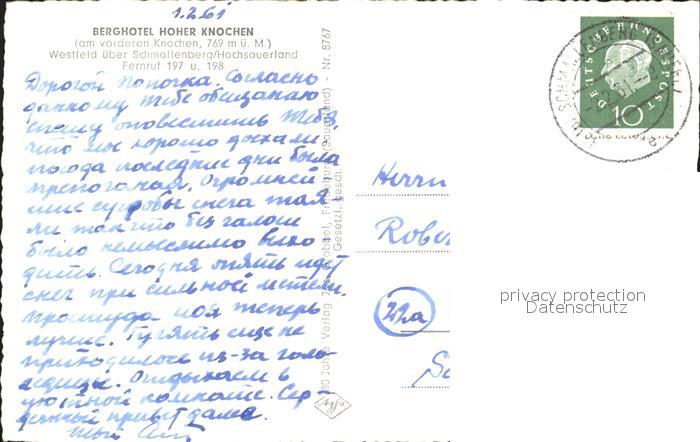 1.2.61
BERGHOTEL HOHER KNOCHEN
(am vorderen Knochen, 769 m ü. M.)
Westfeld über Schmallenberg/Hochsauerland
Fernruf 197 u. 198
Дорогой Согласно
данному Тебе обещанию
спешу оповестить Тебя,
что мы хорошо доехали,
погода последние дни была
препоганая. Огромней-
шие сугробы снега тая
ли так что без галош
было немыслимо выхо
дить. Сегодня опять идет
снег при сильной метели.
Простуда моя теперь
лучше. Гулять еще не
приходилось из-за голо-
ледицы. Отдыхаем в
уютной комнате. Сер-
дечный привет
Твой
Nr. 8767
Gesetzl. gesch.
DEUTSCHE BUNDESPOST
10
SCHMALLENBERG
Herrn
Rober
22a
privacy protection
Datenschutz